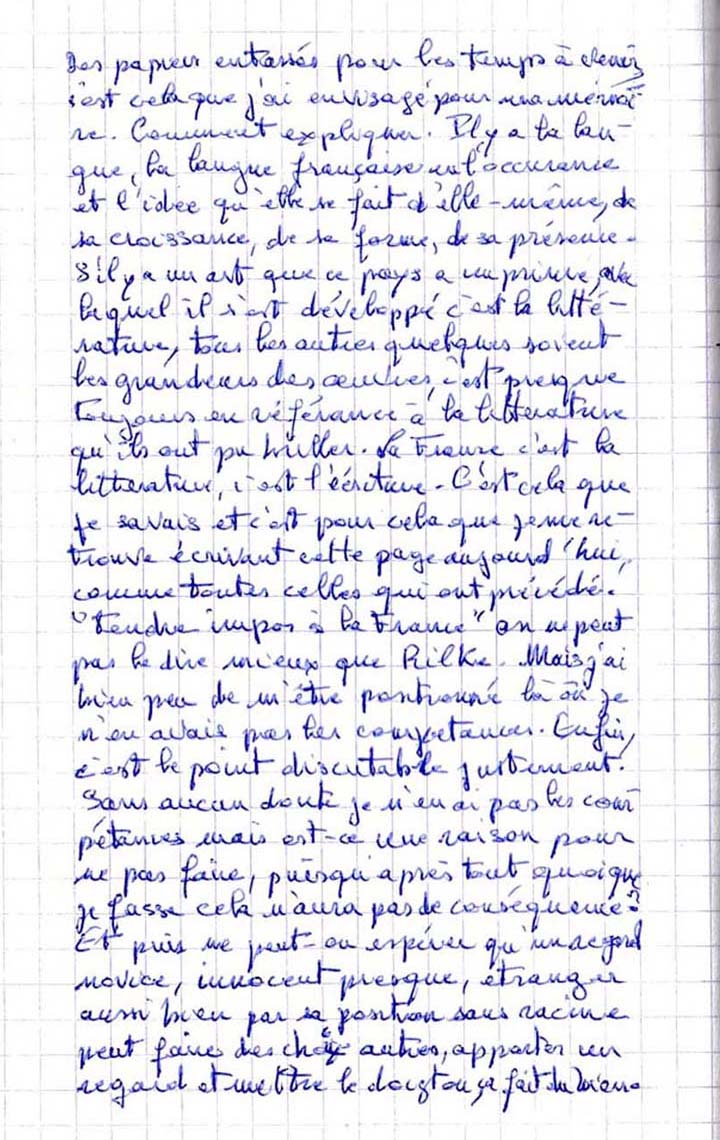 Des papiers entassés pour les temps à venir,
c'est cela que j'ai envisagé pour ma mémoi
re. Comment expliquer. Il y a la lan-
gue, la langue française en l'occurance
et l'idée qu'elle se fait d'elle-même, de
sa croissance, de sa forme, de sa présence.
S'il y a un art que ce pays a imprimé,
lequel il s'est développé c'est la litté-
rature, tous les autres quelques soient
les grandeurs des œuvres, c'est presque
toujours en référance à la litterature
qu'ils ont pu briller. La France c'est la
litterature, c'est l'écriture. C'est cela que
je savais et c'est pour cela que je me re-
trouve écrivant cette page aujourd'hui,
comme toutes celles qui ont précédé.
"Tendre impos à la France" on ne peut
pas le dire mieux que Rilke. Mais j'ai
bien peu de m'être positionné là où je
n'en avais pas les compétances. Enfin,
c'est le point discutable justement.
Sans aucun doute je n'en ai pas les com
pétances mais est-ce une raison pour
ne pas faire, puisqu'après tout quoique
je fasse cela n'aura pas de conséquence?
Et puis ne peut-on espérer qu'un regard
novice, innocent presque, étranger
aussi bien par sa position sans racine
peut faire des choix autres, apporter un
regard et mettre le doigt où ça fait du bien.